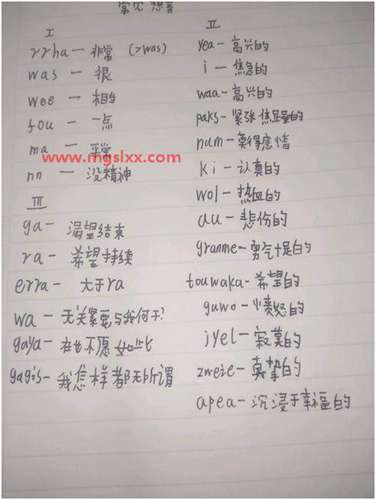 常见想音
I
rrha — 非常 (>was)
was — 很
wee — 相当
fou — 一点
ma —
nn — 没精神
www.mgslxx.com
III
ga — 渴望结束
ra — 希望持续
erra — 大于ra
wa — 无关紧要与我何干?
gaya — 在也不愿如此
gagis — 我怎样都无所谓
II
yea — 高兴的
i — 焦急的
waa — 高兴的
paks — 紧张焦虑的
num — 莫得感情
ki — 认真的
wol — 热血的
au — 悲伤的
granme — 勇气十足的
touwaka — 希望的
guwo — 愤怒的
jyel — 寂寞的
zweie — 真挚的
apea — 沉浸于幸福的